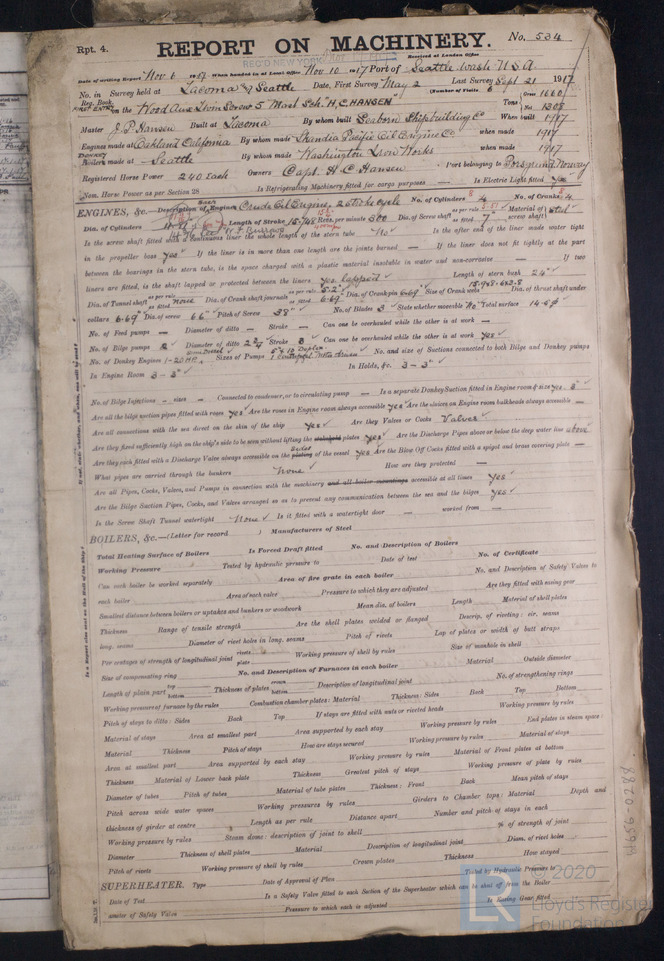 Rpt. 4.
REPORT ON MACHINERY.
No. 534
REC'D NEW YORK Nov
Received at London Office
Date of writing Report Nov 6 1917 When handed in at Local Office Nov 10 1917 Port of Seattle Wash U.S.A.
No. in Survey held at Tacoma & Seattle Date, First Survey May 2 Last Survey Sept 21 1917
Reg. Book. (Number of Visits 6
on the Wood Aux Twin Screw 5 Mast Sch. H. C. HANSEN Tons Gross 1660 Net 1308
Master J. P. Hansen Built at Tacoma By whom built Seaborn Shipbuilding Co When built 1917
Engines made at Oakland California By whom made Skandia Pacific Oil Engine Co. when made 1917
DONKEY Boilers made at Seattle By whom made Washington Iron Works when made 1917
Registered Horse Power 240 each Owners Capt. H. C. Hansen Port belonging to Porsgrund Norway
Nom. Horse Power as per Section 28 Is Refrigerating Machinery fitted for cargo purposes — Is Electric Light fitted Yes
ENGINES, &c.— Description of Engines Crude Oil Engine, 2 Stroke cycle No. of Cylinders 4 No. of Cranks 4
Dia. of Cylinders Length of Stroke Revs. per minute Dia. of Screw shaft as per rule as fitted 7" Material of screw shaft Steel
Is the screw shaft fitted with a continuous liner the whole length of the stern tube No Is the after end of the liner made water tight
in the propeller boss yes If the liner is in more than one length are the joints burned — If the liner does not fit tightly at the part
between the bearings in the stern tube, is the space charged with a plastic material insoluble in water and non-corrosive — If two
liners are fitted, is the shaft lapped or protected between the liners yes. lapped Length of stern bush 24"
Dia. of Tunnel shaft as per rule as fitted None Dia. of Crank shaft journals as per rule 5.2" as fitted 6.69" Dia. of Crank pin 6.69" Size of Crank webs Dia. of thrust shaft under
collars 6.69" Dia. of screw 66" Pitch of Screw 38" No. of Blades 3 State whether moveable No Total surface
No. of Feed pumps — Diameter of ditto — Stroke — Can one be overhauled while the other is at work —
No. of Bilge pumps 2 Diameter of ditto 2 3/4 Stroke 3 Can one be overhauled while the other is at work Yes
No. of Donkey Engines 1-20 HP Sizes of Pumps No. and size of Suctions connected to both Bilge and Donkey pumps
In Engine Room 3 - 3" In Holds, &c. 3 - 3"
No. of Bilge Injections — sizes — Connected to condenser, or to circulating pump — Is a separate Donkey Suction fitted in Engine room & size Yes. 3"
Are all the bilge suction pipes fitted with roses yes Are the roses in Engine room always accessible yes Are the sluices on Engine room bulkheads always accessible —
Are all connections with the sea direct on the skin of the ship yes Are they Valves or Cocks Valves
Are they fixed sufficiently high on the ship's side to be seen without lifting the stokehold plates yes Are the Discharge Pipes above or below the deep water line above
Are they each fitted with a Discharge Valve always accessible on the plating of the vessel yes Are the Blow Off Cocks fitted with a spigot and brass covering plate —
What pipes are carried through the bunkers None How are they protected —
Are all Pipes, Cocks, Valves, and Pumps in connection with the machinery and all boiler mountings accessible at all times yes
Are the Bilge Suction Pipes, Cocks, and Valves arranged so as to prevent any communication between the sea and the bilges yes
Is the Screw Shaft Tunnel watertight None Is it fitted with a watertight door — worked from —
BOILERS, &c.—(Letter for record ) Manufacturers of Steel
Total Heating Surface of Boilers Is Forced Draft fitted No. and Description of Boilers
Working Pressure Tested by hydraulic pressure to Date of test No. of Certificate
Can each boiler be worked separately Area of fire grate in each boiler No. and Description of Safety Valves to
each boiler Area of each valve Pressure to which they are adjusted Are they fitted with easing gear
Smallest distance between boilers or uptakes and bunkers or woodwork Mean dia. of boilers Length Material of shell plates
Thickness Range of tensile strength Are the shell plates welded or flanged Descrip. of riveting: cir. seams
long. seams Diameter of rivet holes in long. seams Pitch of rivets Lap of plates or width of butt straps
Percentages of strength of longitudinal joint rivets plate Working pressure of shell by rules Size of manhole in shell
Size of compensating ring No. and Description of Furnaces in each boiler Material Outside diameter
Length of plain part top bottom Thickness of plates crown bottom Description of longitudinal joint No. of strengthening rings
Working pressure of furnace by the rules Combustion chamber plates: Material Thickness: Sides Back Top Bottom
Pitch of stays to ditto: Sides Back Top If stays are fitted with nuts or riveted heads Working pressure by rules
Material of stays Area at smallest part Area supported by each stay Working pressure by rules End plates in steam space:
Material Thickness Pitch of stays How are stays secured Working pressure by rules Material of stays
Area at smallest part Area supported by each stay Working pressure by rules Material of Front plates at bottom
Thickness Material of Lower back plate Thickness Greatest pitch of stays Working pressure of plate by rules
Diameter of tubes Pitch of tubes Material of tube plates Thickness: Front Back Mean pitch of stays
Pitch across wide water spaces Working pressures by rules Girders to Chamber tops: Material Depth and
thickness of girder at centre Length as per rule Distance apart Number and pitch of stays in each
Working pressure by rules Steam dome: description of joint to shell % of strength of joint
Diameter Thickness of shell plates Material Description of longitudinal joint Diam. of rivet holes
Pitch of rivets Working pressure of shell by rules Crown plates Thickness How stayed
SUPERHEATER. Type Date of Approval of Plan Tested by Hydraulic Pressure to
Date of Test Is a Safety Valve fitted to each Section of the Superheater which can be shut off from the Boiler
Diameter of Safety Valve Pressure to which each is adjusted Is Easing Gear fitted
W656-0288
LR
© 2020
Lloyd's Register
Foundation